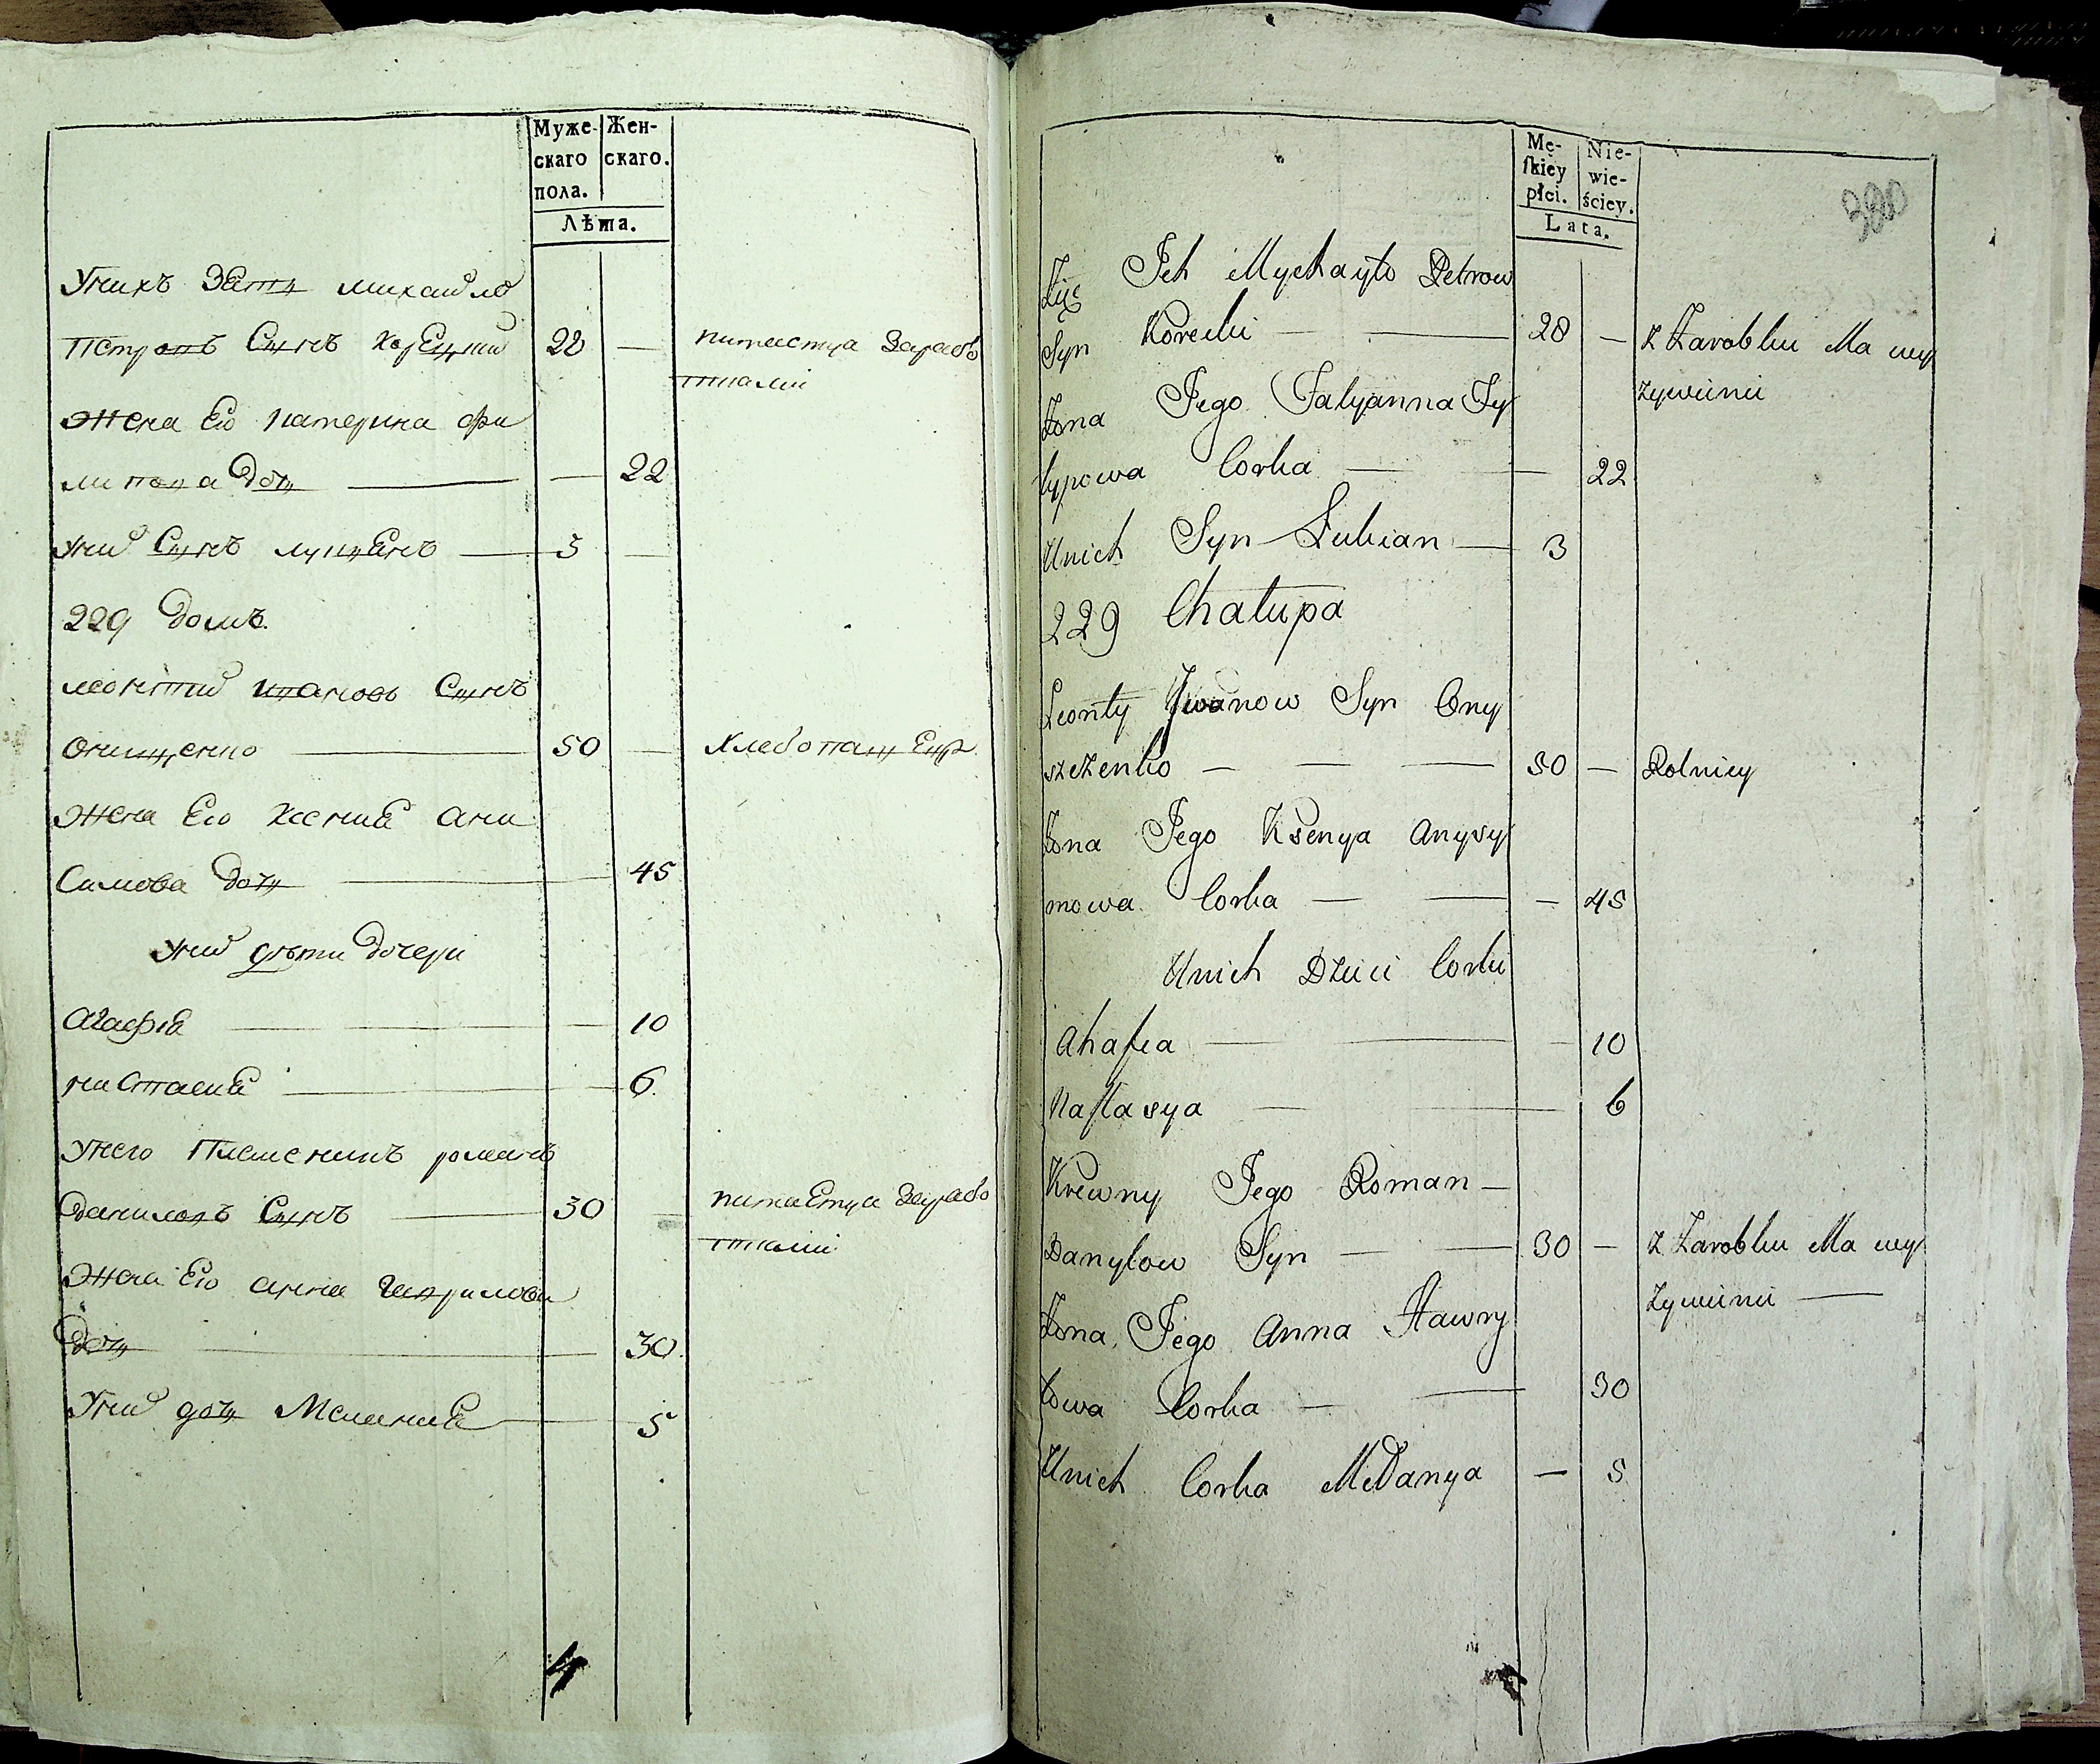 Муже-
скаго
пола.
Жен-
скаго.
Лѣта.
Унихъ Зять михайло
Петровъ Сынъ корецкий 28 — питается Зарабо
тками
Жена Ево катерина фи
липова дочь — — 22
Уний Сынъ лукиянъ — 3 —
229 домъ.
леонтий ивановъ Сынъ
Онищенко — 50 — хлебопашецъ
Жена Ево ксения ани
Симова дочь — 45
Уний дѣти дочери
Агафия — — 10
настасия — 6
Унего Племеникъ романъ
даниловъ Сынъ — 30 — питается Зарабо
тками
Жена Ево анна гаврилова
дочь — 30
Уний дочь Мелания — 5
4
Mę-
ſkiey
płci.
Nie-
wie-
ściey.
Lata.
320
Zięć Ich Mychayło Petrow
Syn Korecki — — 28 — Z Zarobku Ma wy
żywienie
Żona Jego Tatyanna Fy
lypowa Corka — — 22
Unich Syn Lukian — 3
229 Chałupa
Leonty Jwanow Syn Ony
szczenko — — — 50 — Rolniey
Żona Jego Ksenya Anysy
mowa Corka — — — 45
Unich Dzieci Corki
Ahafia — — — 10
Naſtasya — — 6
Krewny Jego Roman —
Danylow Syn — — 30 — Z Zarobku Ma wy
żywienie —
Żona Jego Anna Hawry
łowa Corka — — 30
Unich Corka Mełanya — 5